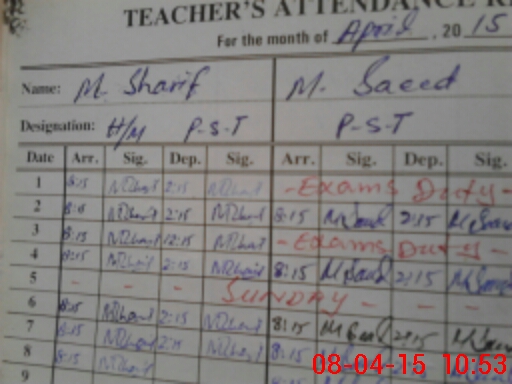 TEACHER'S ATTENDANCE R
For the month of April, 2015
Name: M. Sharif M. Saeed
Designation: H/M P-S-T P-S-T
Date Arr. Sig. Dep. Sig. Arr. Sig. Dep. Sig.
1 8:15 2:15 - Exams Duty -
2 8:15 2:15 8:15 M Saeed 2:15 M Saeed
3 8:15 12:15 - Exams Duty -
4 8:15 2:15 8:15 M Saeed 2:15 M Saeed
5 - - - SUNDAY - - -
6 8:15 2:15 8:15 M Saeed 2:15 M Saeed
7 8:15 2:15 8:15
8 8:15
9
08-04-15 10:53